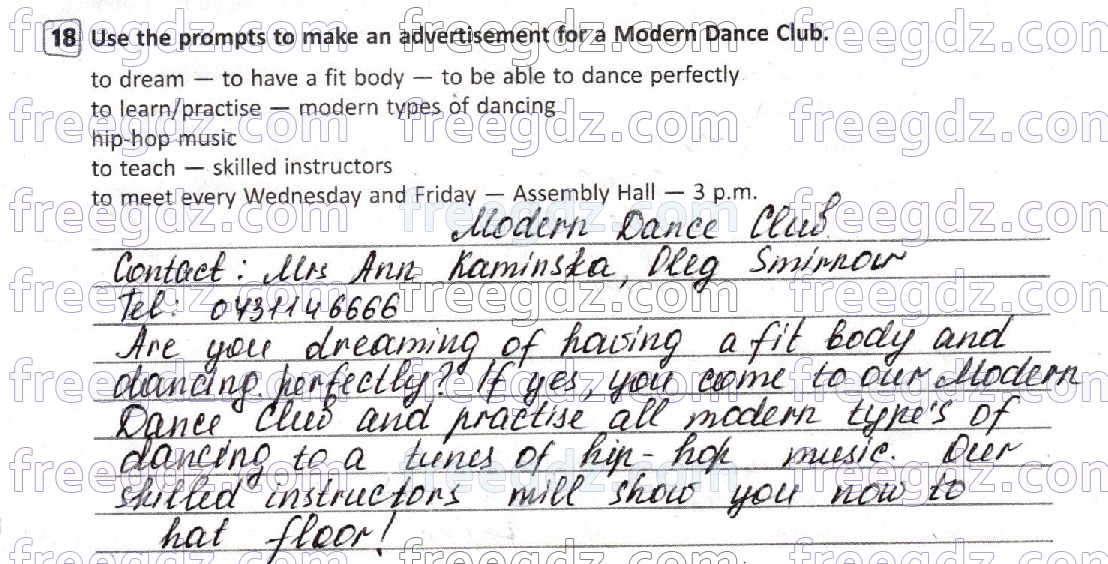 18 Use the prompts to make an advertisement for a Modern Dance Club.
to dream — to have a fit body — to be able to dance perfectly
to learn/practise — modern types of dancing
hip-hop music
to teach — skilled instructors
to meet every Wednesday and Friday — Assembly Hall — 3 p.m.
Modern Dance Club
Contact: Mrs Ann Kaminska, Oleg Smirnow
Tel: 0431146666
Are you dreaming of having a fit body and
dancing perfectly? If yes, you come to our Modern
Dance Club and practise all modern type's of
dancing to a tunes of hip-hop music. Our
skilled instructors mill show you now to
hat floor!
freegdz.com